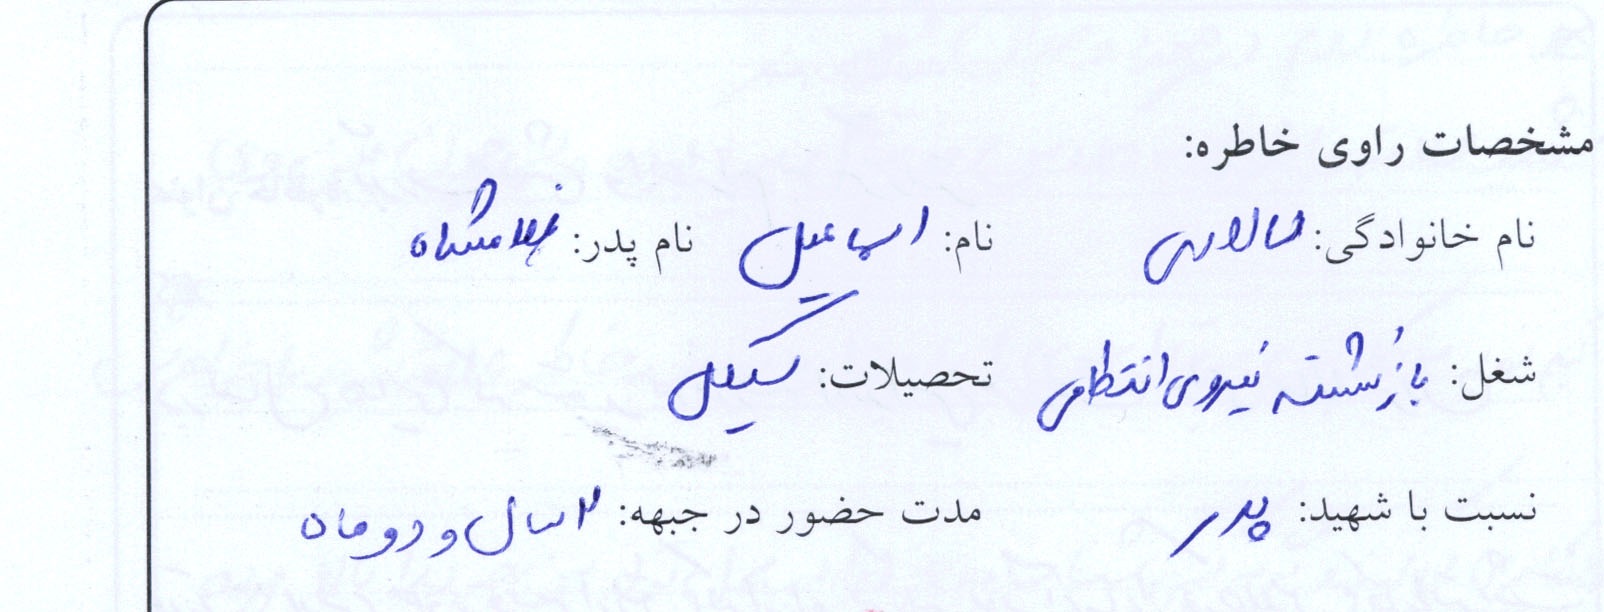 مشخصات راوی خاطره:
نام خانوادگی: سالاری نام: اسماعیل نام پدر: غلامشاه
شغل: بازنشسته نیروی انتظامی تحصیلات: سیکل
نسبت با شهید: پدر مدت حضور در جبهه: ۲ سال و دو ماه